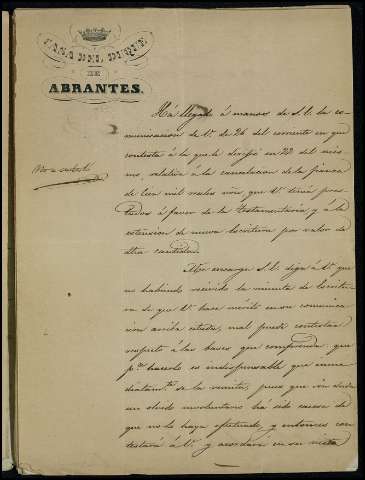 CASA DEL DUQUE
DE
ABRANTES.
Há llegado á manos de S.E. la co-
municacion de V. de 24 del corriente en que
contesta á la que le dirijió en 22 del mis-
mo, relativa á la cancelacion de la fianza
de cien mil reales von, que V. tenia pres-
tados á favor de la Testamentaria, y á la
estension de nueva Escritura por valor de
otra cantidad.
Me encarga S.E. diga á V. que
no habiendo recibido la minuta de Escritu-
ra de que V. hace mérito en su comunica-
cion arriba citada, mal puede contestar
respecto á las bases que comprenda: que
pa. hacerlo es indispensable que inme-
diatamte. se la remita, pues que sin duda
un olvido involuntario há sido causa de
que no lo haya efectuado, y entonces con-
testará á V. y acordará en su vista